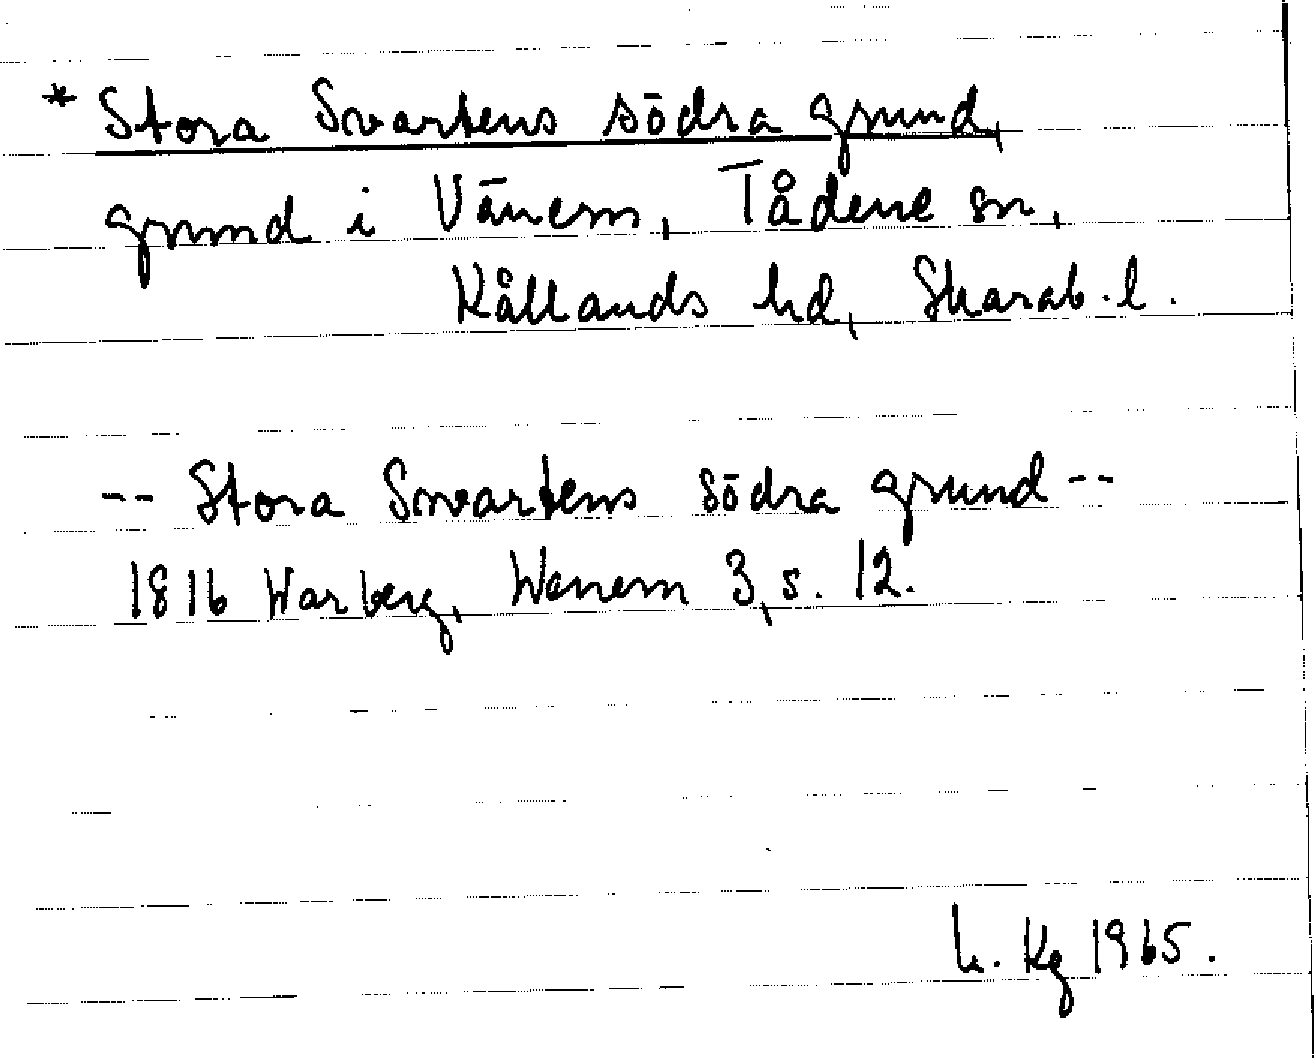 * Stora Svartens södra grund,
grund i Vänern, Tådene sn,
Kållands hd, Skarab. l.
-- Stora Swartens södra grund --
1816 Warberg, Wenern 3, s. 12.
Kg 1965.